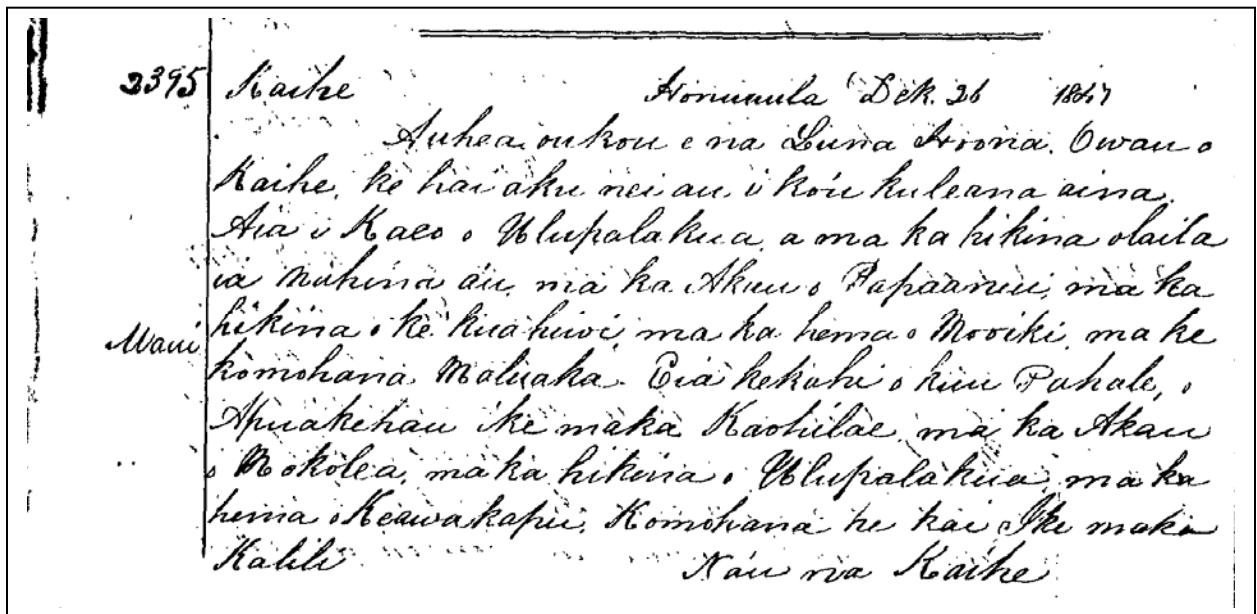 2395 Kaihe Honuaula Dek. 26 1847
Auhea oukou e na Luna Hoona. Owau o
Kaihe, ke hai aku nei au i ko'u kuleana aina.
Aia i Kaeo o Ulupalakua, a ma ka hikina olaila
ia Mahina au, ma ka Akau o Papaanui, ma ka
hikina o ke kuahiwi, ma ka hema o Mooiki, ma ke
Maui komohana Maluaka. Eia kekahi o kuu Pahale, o
Apuakehau ike maka Kaohilae, ma ka Akau
o Mokolea, ma ka hikina o Ulupalakua, ma ka
hema o Keawakapu, Komohana he kai, Ike maka
Kalili Na'u na Kaihe